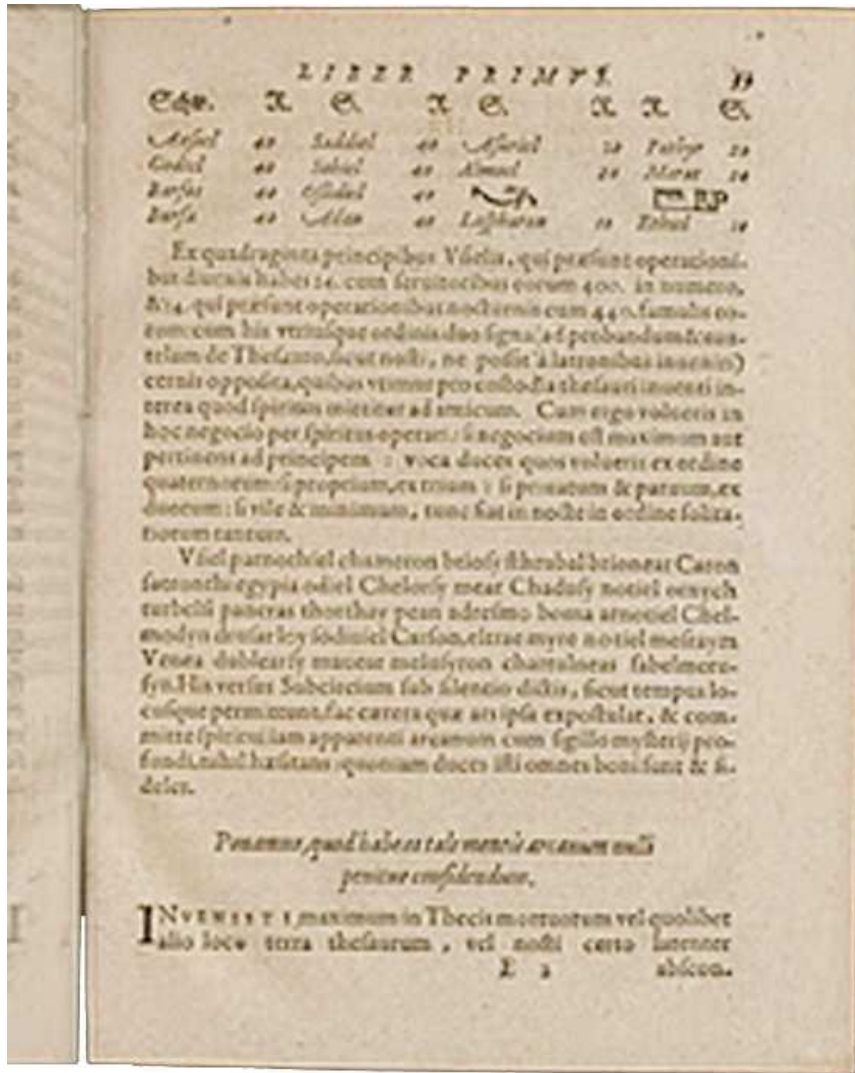 LIBER PRIMVS.
N. S. N. S. N. N. S.
Ansoel 40 Saddiel 40 Asuriel 20 Pathyr 20
Godiel 40 Sobiel 40 Almoel 20 Marae 20
Barfos 40 Ossidiel 40
Burfa 40 Adan 40 Laspharon 10 Ethiel 10
Ex quadraginta principibus Vsielis, qui præsunt operationi-
bus diurnis habes 14. cum seruitoribus eorum 400. in numero,
&14. qui præsunt operationibus nocturnis cum 440. famulis eo-
rum: cum his vtriusque ordinis duo signa ad probandum & cau-
telam de Thesauro, sicut nosti, ne possit à latronibus inueniri)
cernis opposita, quibus vtimur pro custodia thesauri inuenti in-
terea quod spiritus mittitur ad amicum. Cum ergo volueris in
hoc negocio per spiritus operari: si negocium est maximum aut
pertinens ad principem : voca duces quos volueris ex ordine
quaternorum: si proprium, ex trium : si priuatum & paruum, ex
duorum: si vile & minimum, tunc fiat in nocte in ordine solita-
riorum tantum.
Vsiel parnothiel chameron briosy sthrubal brionear Caron
sotronthi egypia odiel Chelorsy mear Chadusy notiel ornych
turbelsi paneras thorthay pean adresmo boma arnotiel Chel-
modyn drusarloy sodiuiel Carson, eltrae myre notiel mesraym
Venea dublearsy mauear melusyron chartulneas fabelmeru-
syn. His versus Subcircium sub silentio dictis, sicut tempus lo-
cusque permittunt, fac cætera quæ ars ipsa expostulat, & com-
mitte spiritui iam apparenti arcanum cum sigillo mysterij pro-
fundi, nihil hæsitans: quoniam duces isti omnes boni sunt & fi-
deles.
Ponamus, quod habeas tale mentis arcanum nulli
penitus confidendum.
INVENISTI maximum in Thecis mortuorum vel quolibet
alio loco terra thesaurum, vel nosti certo latenter
E 2 abscon-